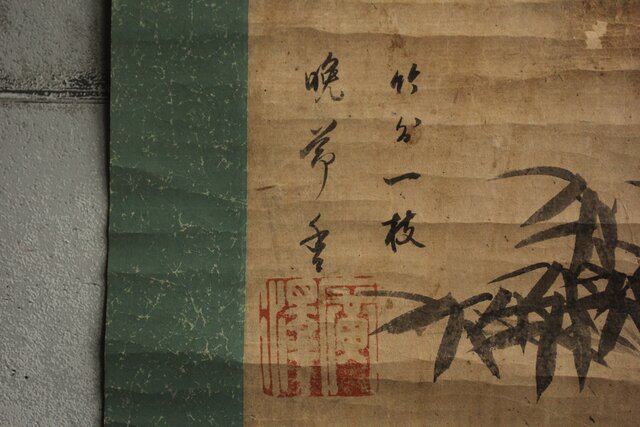 竹分一枝
晩節香